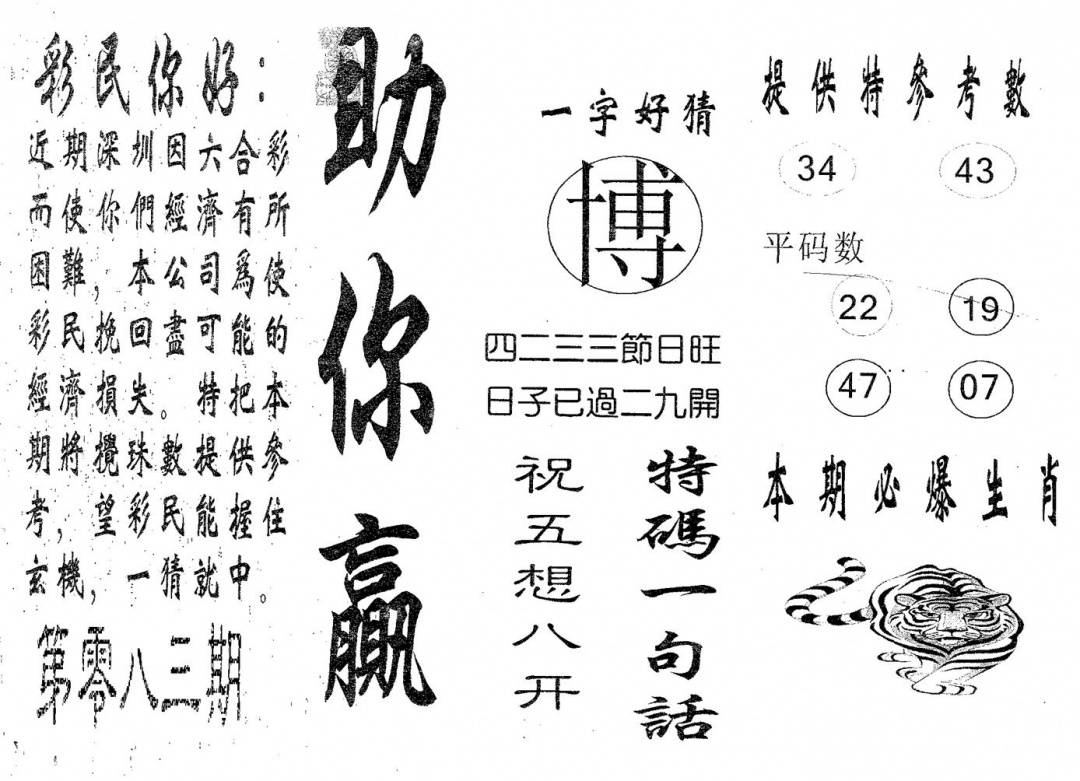 彩民你好：
近期深圳因六合彩
而使你們經濟有所
困難，本公司爲使
彩民挽回盡可能的
經濟損失。特把本
期將攪珠數提供參
考，望彩民能握住
玄機，一猜就中。
第零八三期
助你贏
一字好猜
博
四二三三節日旺
日子已過二九開
特碼一句話
祝五想八开
提供特參考數
34 43
平码数
22 19
47 07
本期必爆生肖